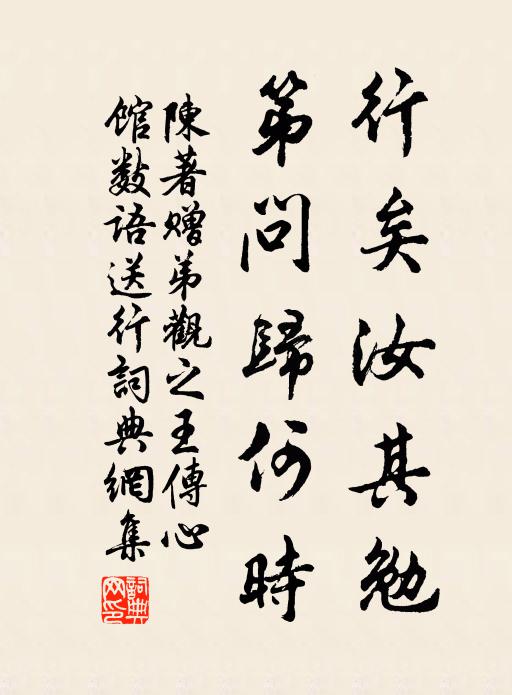 行矣汝其勉
第問歸何時
陳著贈弟觀之王傳心
館數語送行詞典網集